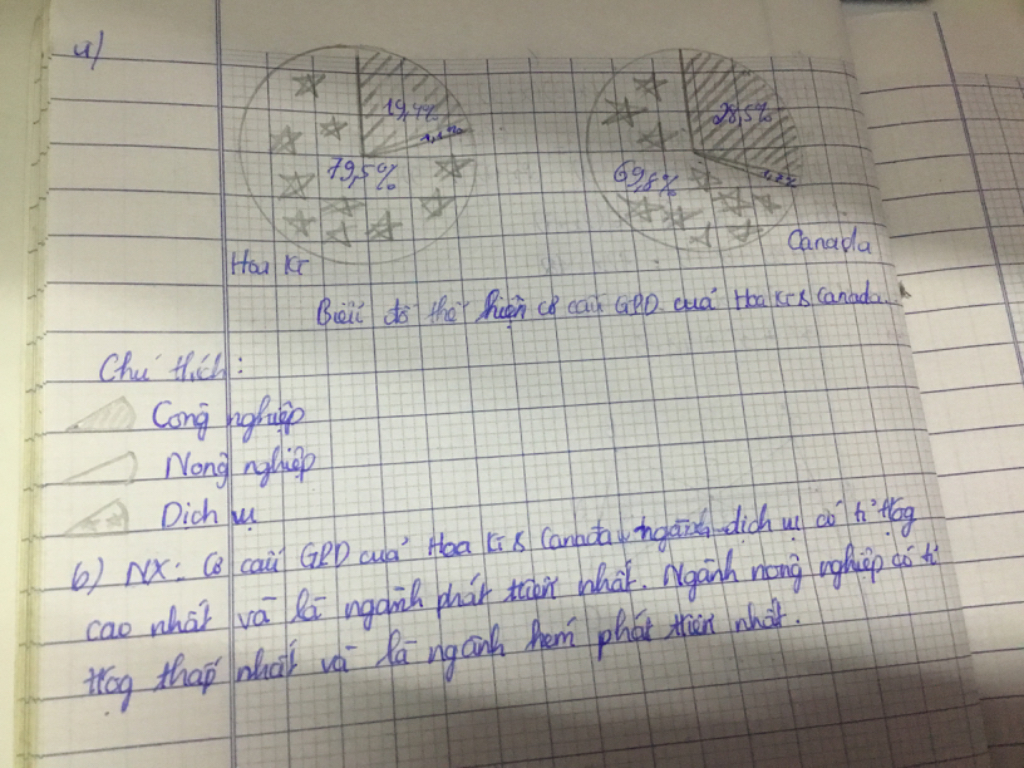 a)
19,4%
1,1%
79,5%
28,5%
69,8%
Hoa Kì
Canada
Biểu đồ thể hiện cơ cấu GPD của Hoa Kì & Canada.
Chú thích:
Công nghiệp
Nông nghiệp
Dịch vụ
b) NX: Cơ cấu GPD của Hoa Kì & Canada ngành dịch vụ có tỉ trọg
cao nhất và là ngành phát triển nhất. Ngành nông nghiệp có tỉ
trọg thấp nhất và là ngành kém phát triển nhất.